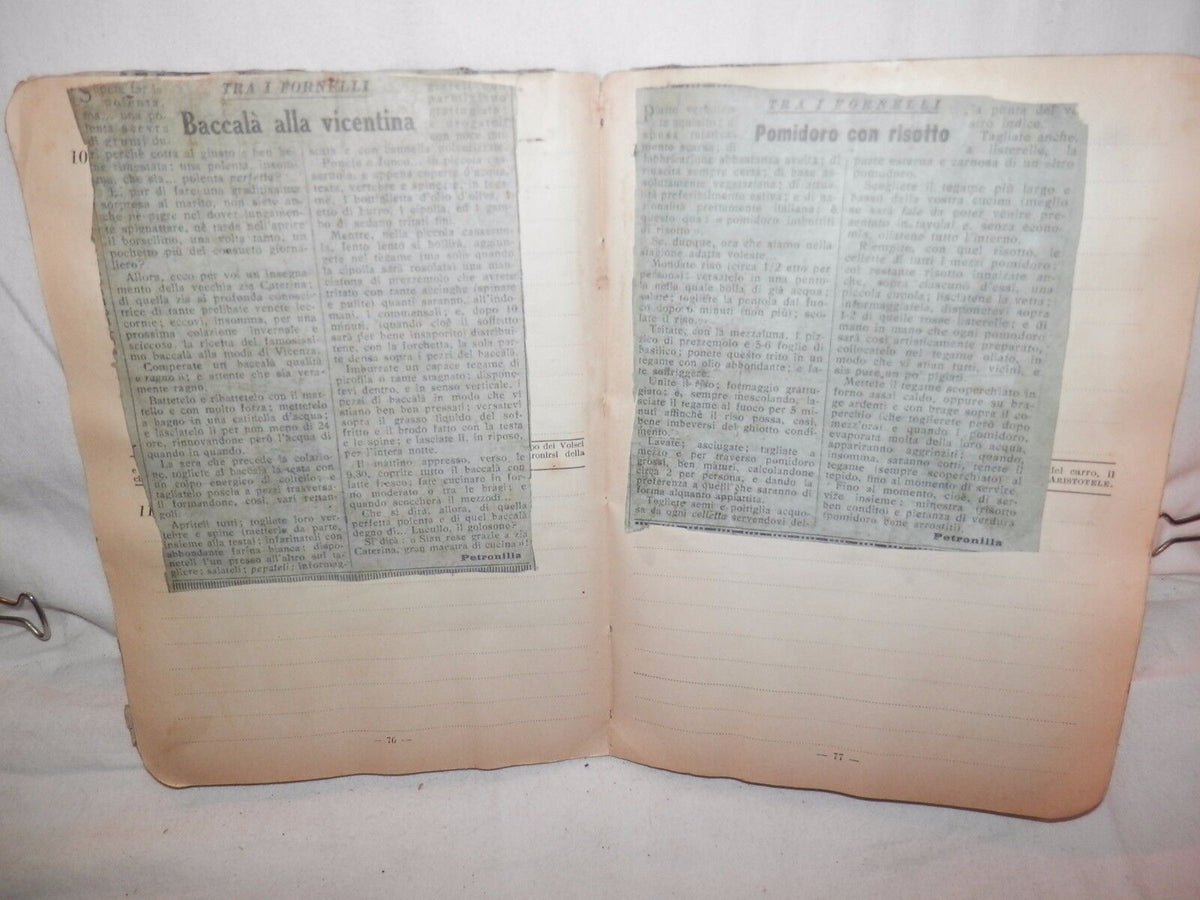 TRA I FORNELLI
Baccalà alla vicentina
polenta,
perchè cotta al giusto e ben
polenta perfetta?
E, pur di fare una graditissima
sorpresa al marito, non siete an-
che nè pigre nel dover lungamen-
te spignattare, nè tarde nell'aprire
il borsellino, una volta tanto, un
pochetto più del consueto giorna-
liero?
Allora, ecco per voi un insegna-
mento della vecchia zia Caterina;
di quella zia sì profonda conosci-
trice di tante prelibate venete lec-
cornie; eccovi, insomma, per una
prossima colazione invernale e
sciccosa, la ricetta del famosissi-
mo baccalà alla moda di Vicenza.
Comperate un baccalà qualità
« ragno »; e attente che sia vera-
mente ragno.
Battetelo e ribattetelo con il mar-
tello e con molta forza; mettetelo
a bagno in una catinella d'acqua;
e lasciatelo lì per non meno di 24
ore, rinnovandone però l'acqua di
quando in quando.
La sera che precede la colazio-
ne, togliete al baccalà la testa con
un colpo energico di coltello; e
tagliatelo poscia a pezzi trasversa-
li formandone, così, vari rettan-
goli.
Apriteli tutti; togliete loro ver-
tebre e spine (mettetele da parte,
insieme alla testa); infarinateli con
abbondante farina bianca; dispo-
neteli l'un presso all'altro sul ta-
gliere; salateli; pepateli;
parmigiano
con noce mo-
scata e con cannella polverizzate.
Ponete a fuoco, in piccola cas-
seruola, e appena coperte d'acqua,
testa, vertebre e spine; e, in tega-
me, 1 bottiglietta d'olio d'oliva, 1
etto di burro, 1 cipolla, ed 1 gam-
bo di sedano tritati fini.
Mentre, nella piccola casseruo-
la, lento lento si bollirà, aggiun-
gete nel tegame (ma solo quando
la cipolla sarà rosolata) una man-
ciatona di prezzemolo che avrete
tritato con tante acciughe (spinate
e lavate) quanti saranno, all'indo-
mani, i commensali; e, dopo 10
minuti, (quando cioè il soffritto
sarà per bene insaporito) distribui-
tene, con la forchetta, la sola par-
te densa sopra i pezzi del baccalà.
Imburrate un capace tegame di
pirofila o rame stagnato; dispone-
tevi dentro e in senso verticale, i
pezzi di baccalà in modo che vi
stiano ben ben pressati; versatevi
sopra il grasso liquido del sof-
fritto e il brodo fatto con la testa
e le spine; e lasciate lì, in riposo,
per l'intera notte.
Il mattino appresso, verso le
9,30, coprite tutto il baccalà con
latte fresco; fate cucinare in for-
no moderato o tra le braci; e
quando scoccherà il mezzodì...
Che si dirà, allora, di quella
perfetta polenta e di quel baccalà
degno di... Lucullo, il golosone?
Si dica: « Sian rese grazie a zia
Caterina, gran maestra di cucina »!
Petronilla
po dei Volsci
della
— 76 —
TRA I FORNELLI
Pomidoro con risotto
fabbricazione abbastanza svelta; di
riuscita sempre certa; di base as-
solutamente vegetariana; di attua-
lità preferibilmente estiva; e di na-
zionalità prettamente italiana; è
questo qua: « pomidoro ripieni
di risotto ».
Se, dunque, ora che siamo nella
stagione adatta voleste...
Mondate riso (circa 1/2 etto per
persona); versatelo in una pento-
la nella quale bolla di già acqua
salata; togliete la pentola dal fuo-
co dopo 6 minuti (non più); sco-
late il riso.
Tritate, con la mezzaluna, 1 piz-
zico di prezzemolo e 5-6 foglie di
basilico; ponete questo trito in un
tegame con olio abbondante; e fa-
te soffriggere.
Unite il riso; formaggio grattu-
giato; e, sempre mescolando, la-
sciate il tegame al fuoco per 5 mi-
nuti affinchè il riso possa, così,
bene imbeversi del ghiotto condi-
mento.
Lavate; asciugate; tagliate a
mezzo e per traverso pomidoro
grossi, ben maturi, calcolandone
circa 2 per persona, e dando la
preferenza a quelli che saranno di
forma alquanto appiattita.
Togliete semi e poltiglia acquo-
sa da ogni celletta servendovi del-
la punta del vo-
stro indice.
Tagliate anche,
a listerelle, la
parte esterna e carnosa di un altro
pomidoro.
Scegliete il tegame più largo e
basso della vostra cucina (meglio
se sarà tale da poter venire pre-
sentato in tavola) e, senza econo-
mia, oliatene tutto l'interno.
Riempite, con quel risotto, le
cellette di tutti i vostri pomidoro;
col restante risotto innalzate an-
che, sopra ciascuno d'essi, una
piccola cupola; lisciatene la vetta;
formaggiatela; disponetevi sopra
1-2 di quelle rosse listerelle; e di
mano in mano che ogni pomidoro
sarà così artisticamente preparato,
collocatelo nel tegame oliato, in
modo che vi stian tutti, vicini, e
sia pure, un po' pigiati.
Mettete il tegame scoperchiato in
forno assai caldo, oppure su bra-
ge ardenti e con brage sopra il co-
perchio (che toglierete però dopo
mezz'ora) e quando i pomidoro,
evaporata molta della loro acqua,
appariranno aggrinziti; quando,
insomma, saranno cotti, tenete il
tegame (sempre scoperchiato) al
tepido, fino al momento di servire.
Fino al momento, cioè, di ser-
vire insieme: minestra (risotto
ben condito) e pietanza di verdura
(pomidoro bene arrostiti).
Petronilla
del carro, il
ARISTOTELE.
— 77 —